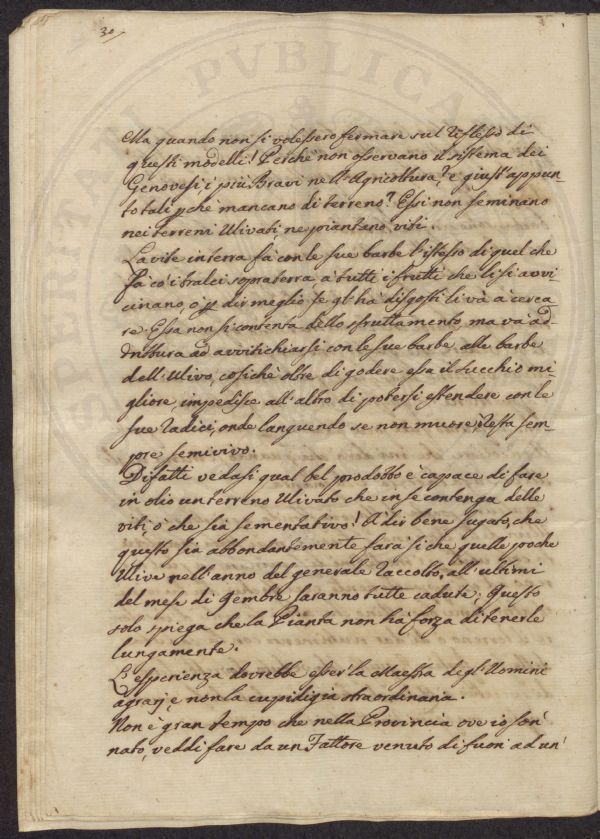 30/
PVBLICA
Ma quando non si volessero fermare sul riflesso di
questi modelli! Perchè non osservano il sistema dei
Genovesi, i più Bravi nell'Agricoltura, e giust'appun
to tali pchè mancano di terreno? Essi non seminano
nei terreni Ulivati ne piantano viti.
La vite in terra fà con le sue barbe l'istesso di quel che
fà co' i tralci sopra terra, à tutti i frutti che li si avvi¬
cinano, o p dir meglio se gl'hà discosti li và à cerca¬
re. Essa non si contenta dello sfruttamento, ma và ad¬
drittura ad avviticchiarsi con le sue barbe alle barbe
dell'Ulivo, cosichè oltre di godere essa il succhio mi¬
gliore, impedisce all'altro di potersi estendere con le
sue radici, onde languendo se non muore, resta sem¬
pre semivivo.
Difatti vedasi qual bel prodotto è capace di fare
in olio un terreno Ulivato che in se contenga delle
viti, ò che sia sementativo! A dir bene sugato, che
questo sia abbondantemente farà si che quelle poche
Ulive nell'anno del generale raccolto, all'ultimi
del mese di 9embre saranno tutte cadute; Questo
solo spiega che la Pianta non hà forza di tenerle
lungamente.
L'esperienza dovrebbe esser la Maestra degl'Uomini
agrarj e non la cupidigia straordinaria.
Non è gran tempo che nella Provincia ove io son'
nato, veddi fare da un Fattore venuto di fuori ad un'